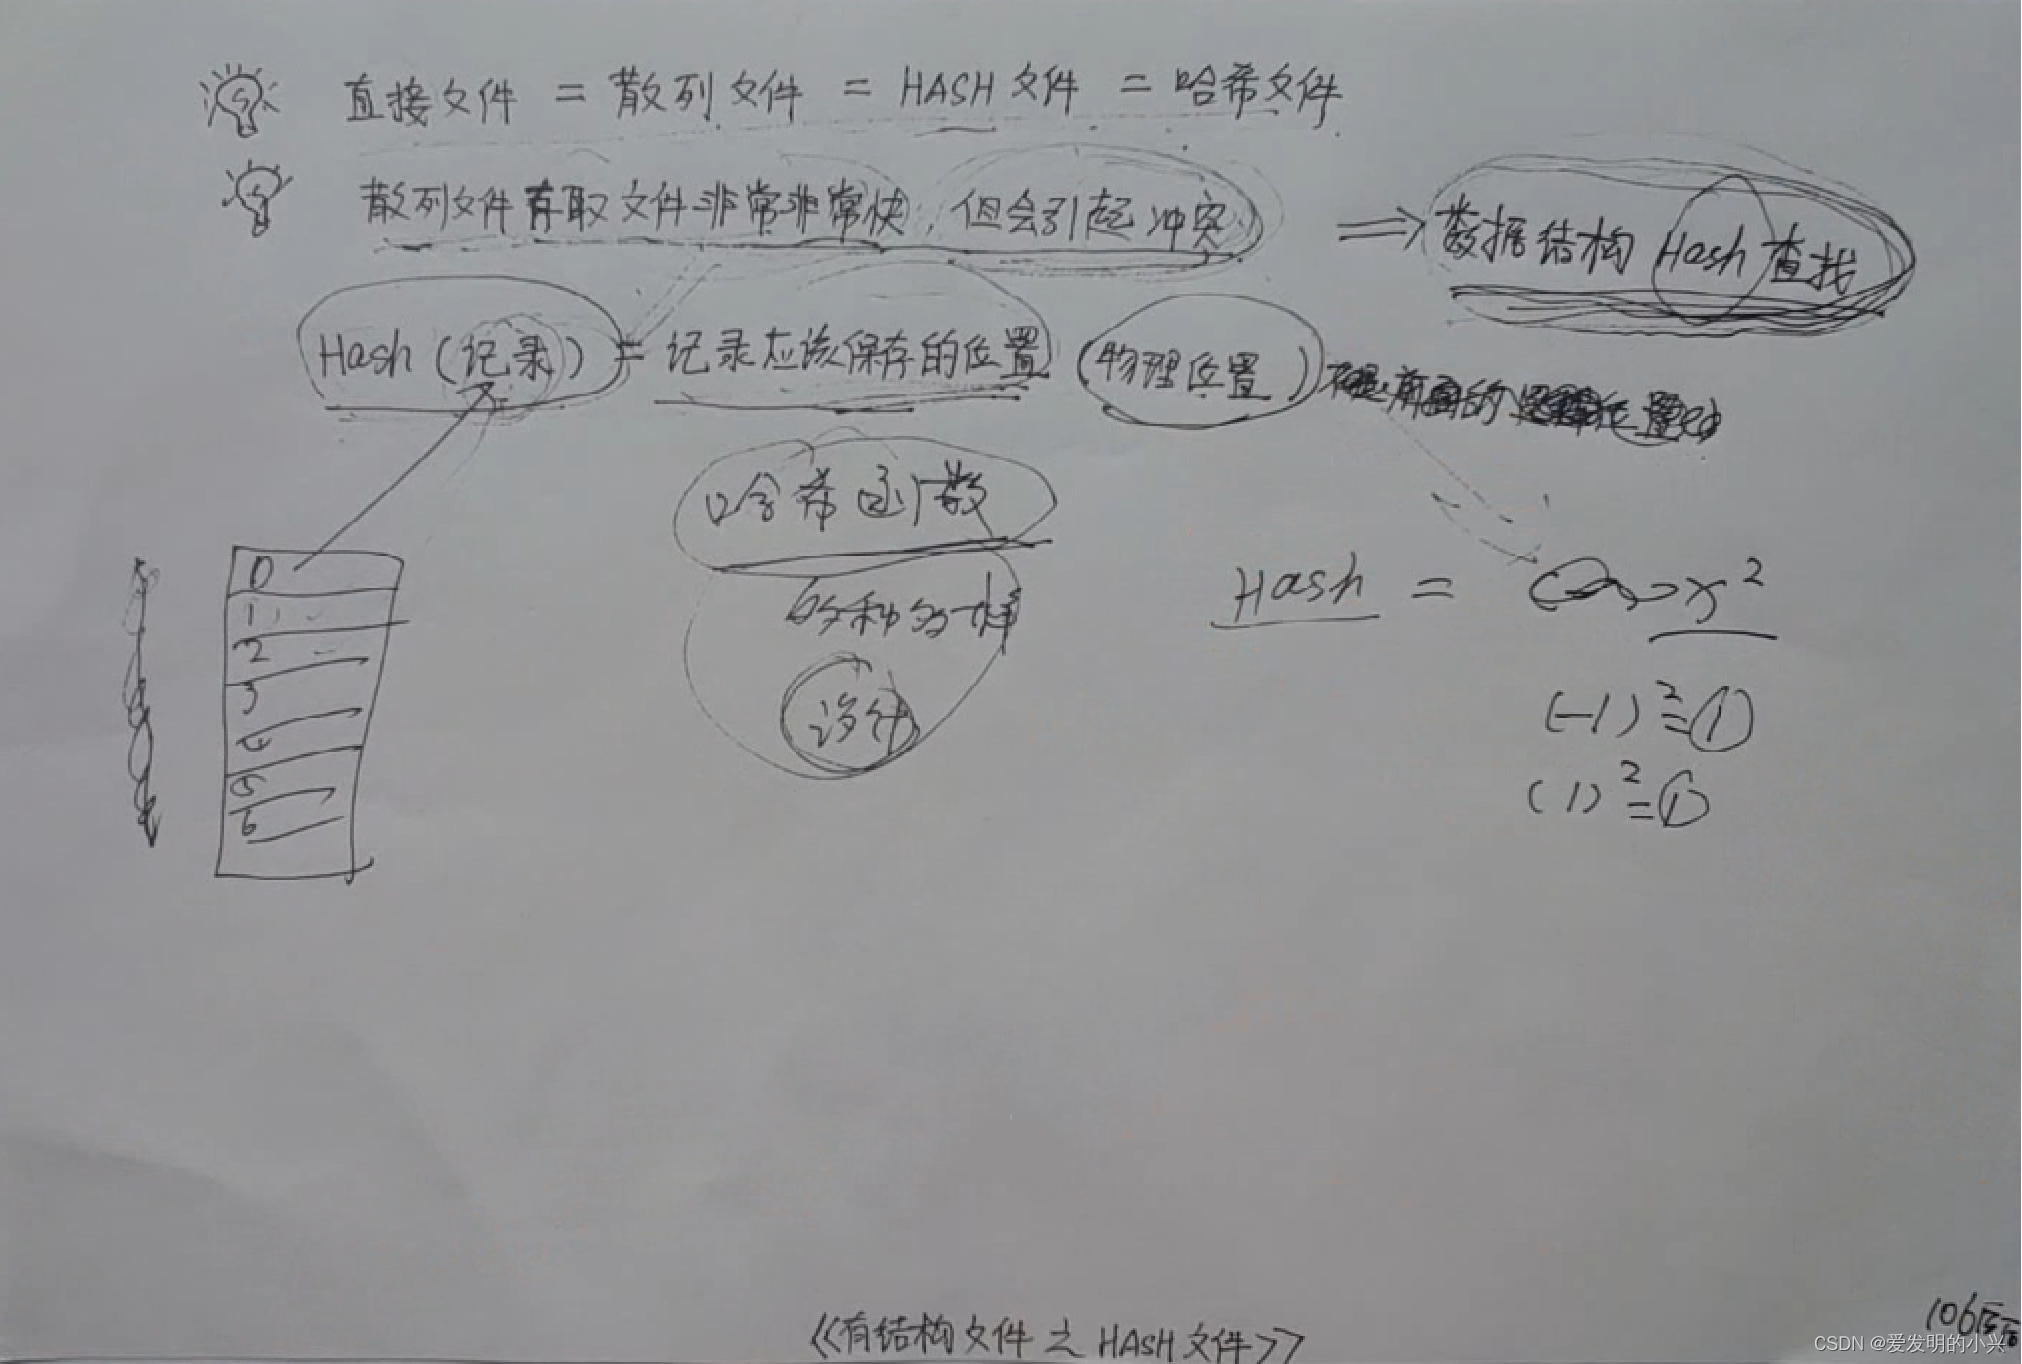 直接文件 = 散列文件 = HASH 文件 = 哈希文件
散列文件存取文件非常非常快，但会引起冲突 ⇒ 数据结构 Hash 查找
Hash（记录）= 记录应该保存的位置（物理位置）
哈希函数
多种多样
设计
0
1
2
3
4
5
6
Hash = x²
(-1)²=1
(1)²=1
《有结构文件之HASH文件》
106
CSDN @爱发明的小兴